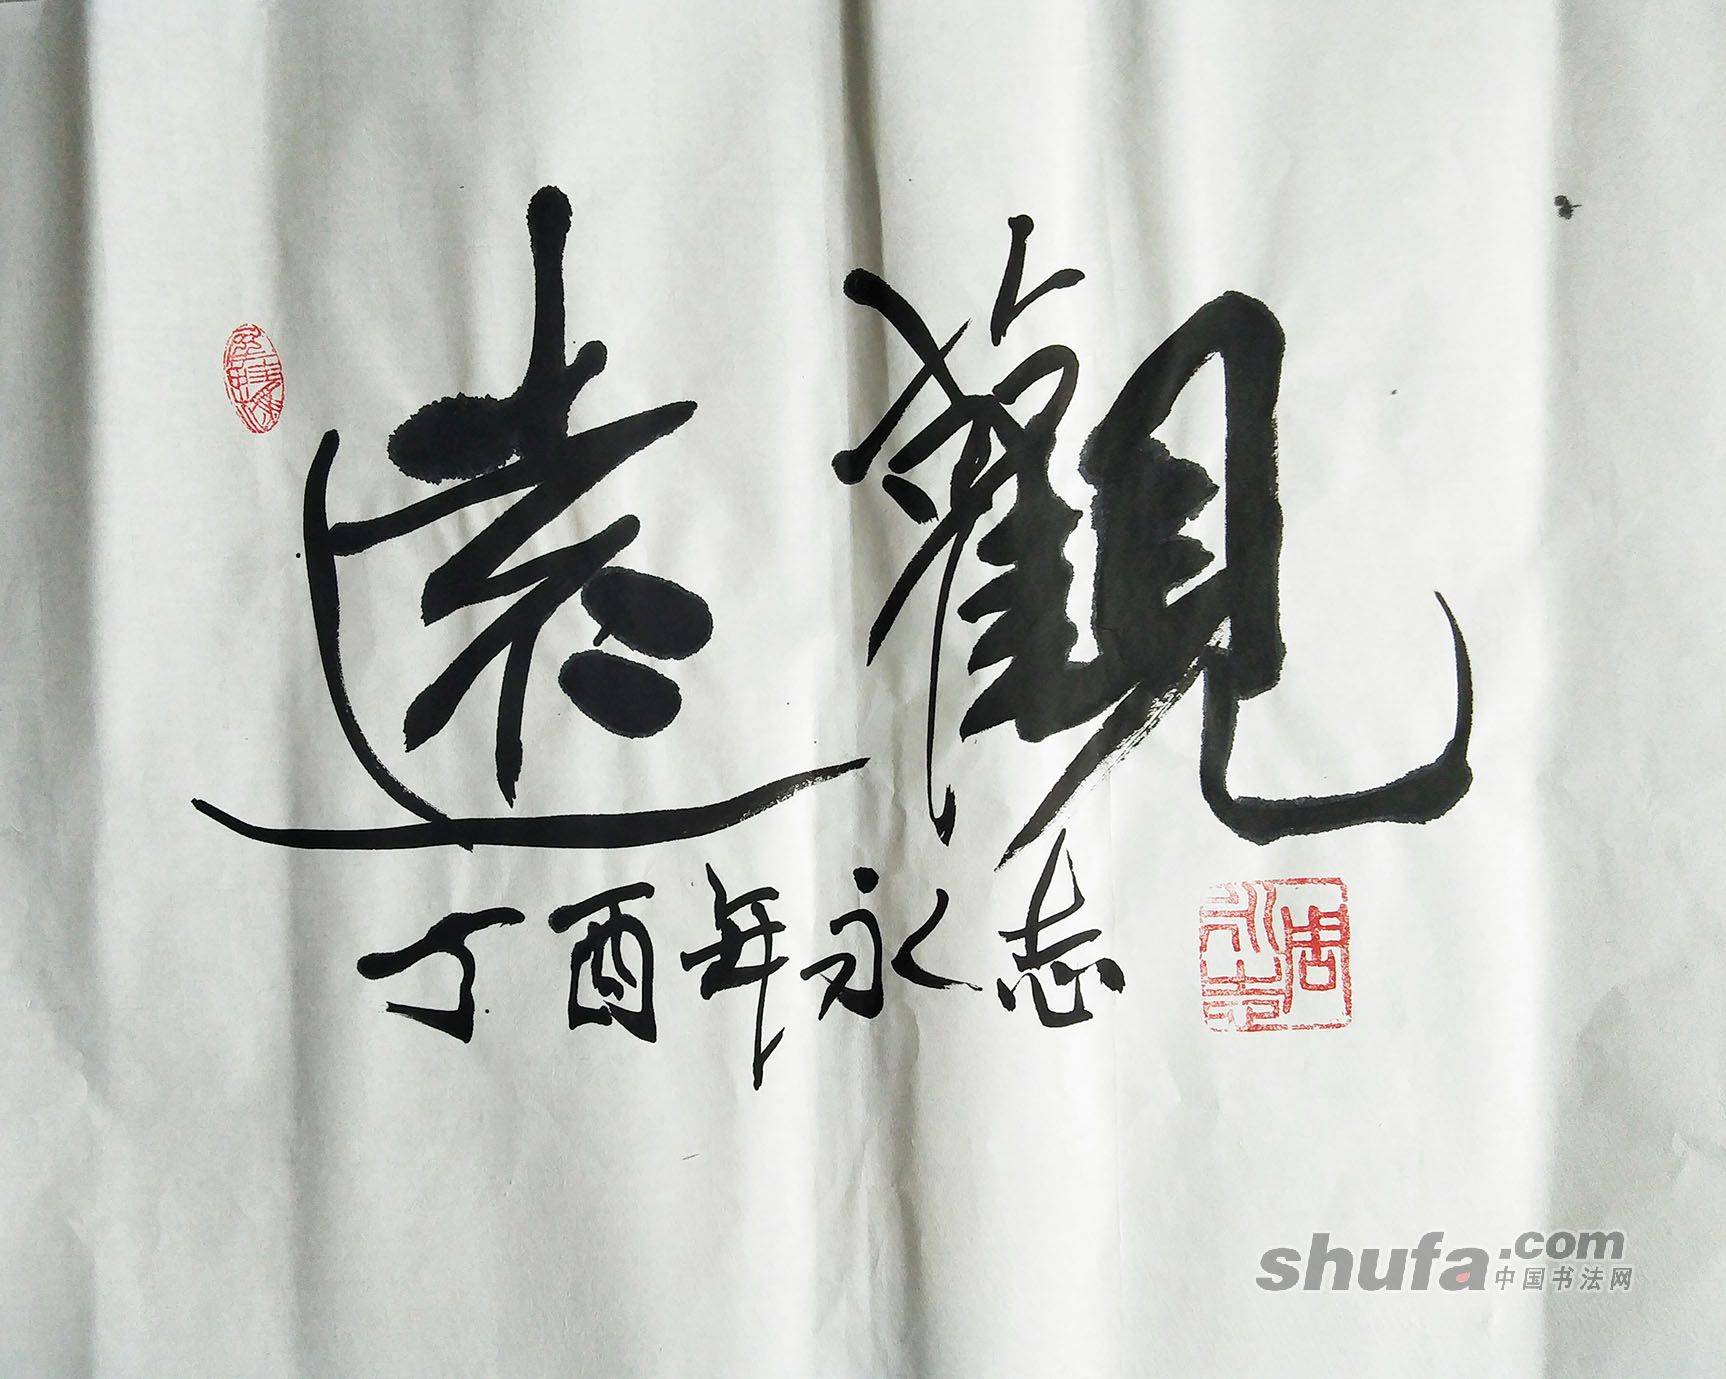 遠觀
丁酉年永志
周永志
shufa.com
中国书法网